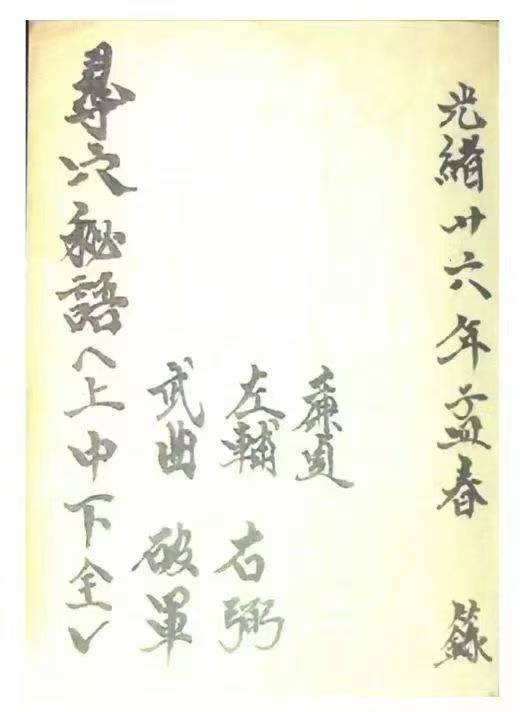 光緒卅六年孟春 籙
廉貞
左輔 右弼
武曲 破軍
尋穴秘語（上中下全）